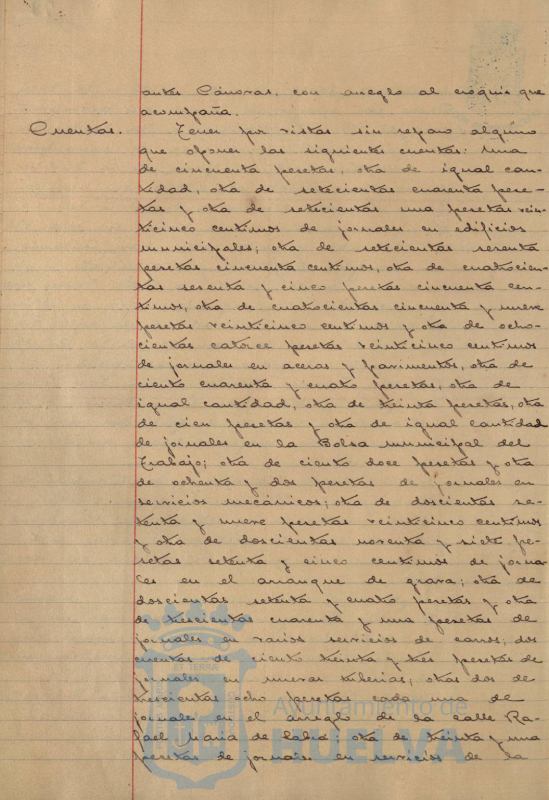 antes Cánovas, con arreglo al cróquis que
acompaña.
Cuentas. Tener por vistas sin reparo alguno
que oponer las siguientes cuentas: Una
de cincuenta pesetas, otra de igual can-
tidad, otra de setecientas cuarenta pese-
tas y otra de setecientas una pesetas vein-
ticinco centimos de jornales en edificios
municipales; otra de setecientas sesenta
pesetas cincuenta centimos, otra de cuatrocien-
tas sesenta y cinco pesetas cincuenta cen-
timos, otra de cuatrocientas cincuenta y nueve
pesetas veinticinco centimos y otra de ocho-
cientas catorce pesetas veinticinco centimos
de jornales en aceras y pavimentos, otra de
ciento cuarenta y cuatro pesetas, otra de
igual cantidad, otra de treinta pesetas, otra
de cien pesetas y otra de igual cantidad
de jornales en la Bolsa municipal del
Trabajo; otra de ciento doce pesetas y otra
de ochenta y dos pesetas de jornales en
servicios mecánicos; otra de doscientas se-
tenta y nueve pesetas veinticinco centimos
y otra de doscientas noventa y siete pe-
setas setenta y cinco centimos de jorna-
les en el arranque de grava; otra de
doscientas setenta y cuatro pesetas y otra
de trescientas cuarenta y una pesetas de
jornales en varios servicios de carros; dos
cuentas de ciento treinta y tres pesetas de
jornales en nuevas tuberias; otras dos de
trescientas ocho pesetas cada una de
jornales en el arreglo de la calle Ra-
fael Maria de Labra; otra de treinta y una
pesetas de jornales en servicios de la
Ayuntamiento de
HUELVA